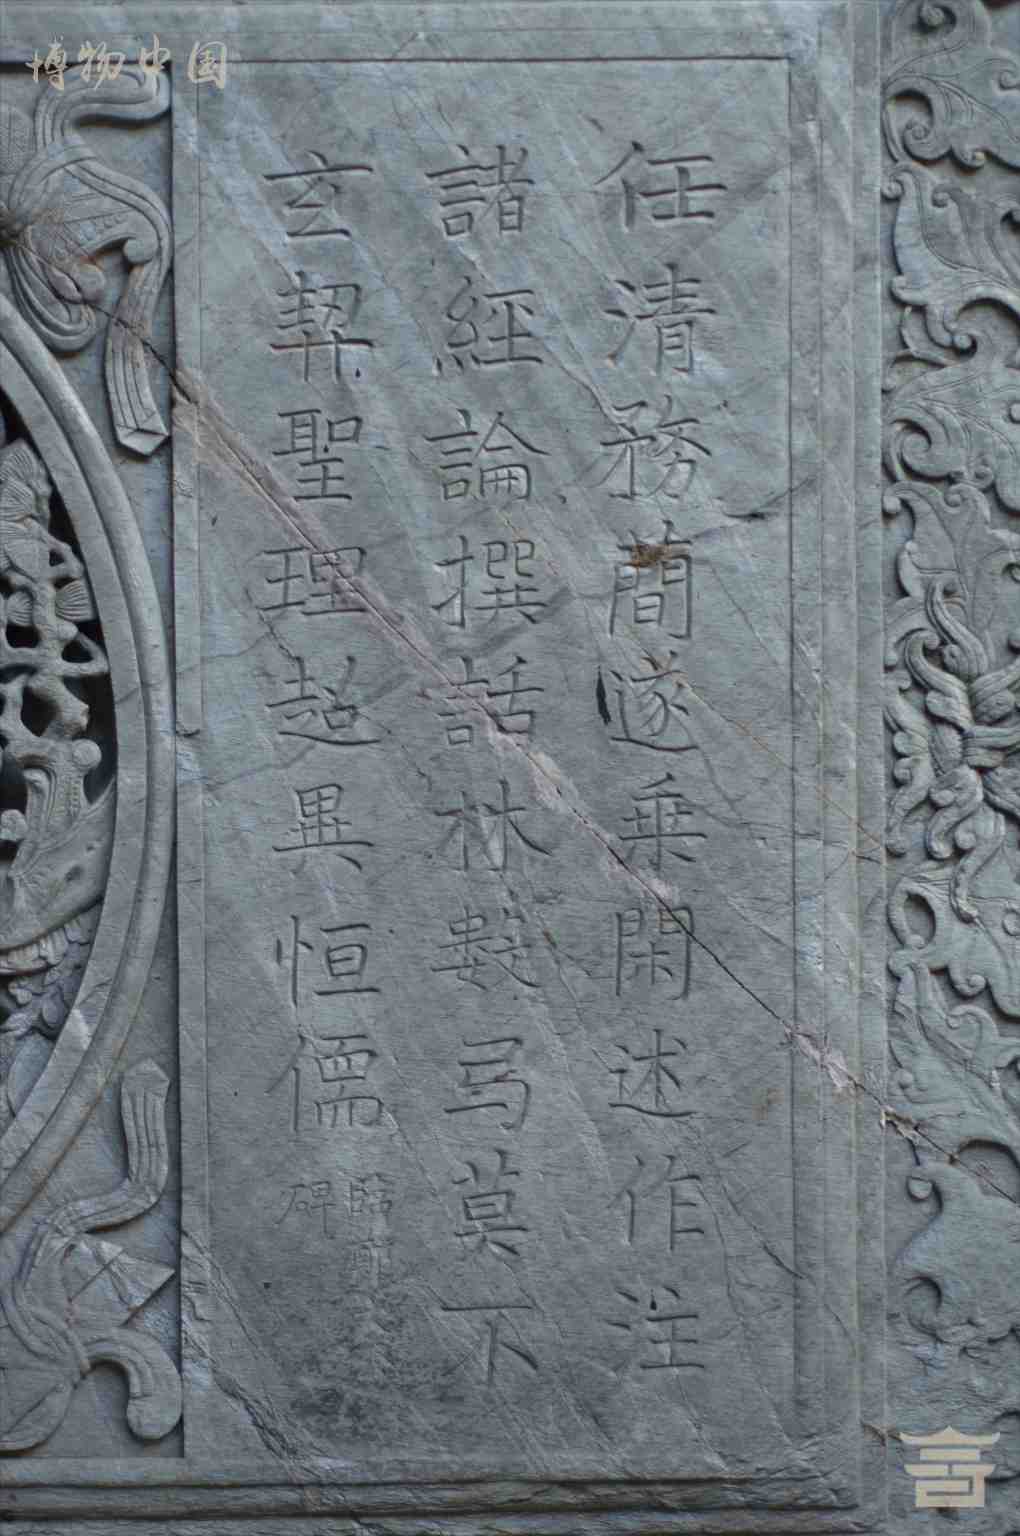 博物中国
任清務簡遂乗閑述作注
諸經論撰話林數弓莫不
玄契聖理超異恒儒
臨
碑